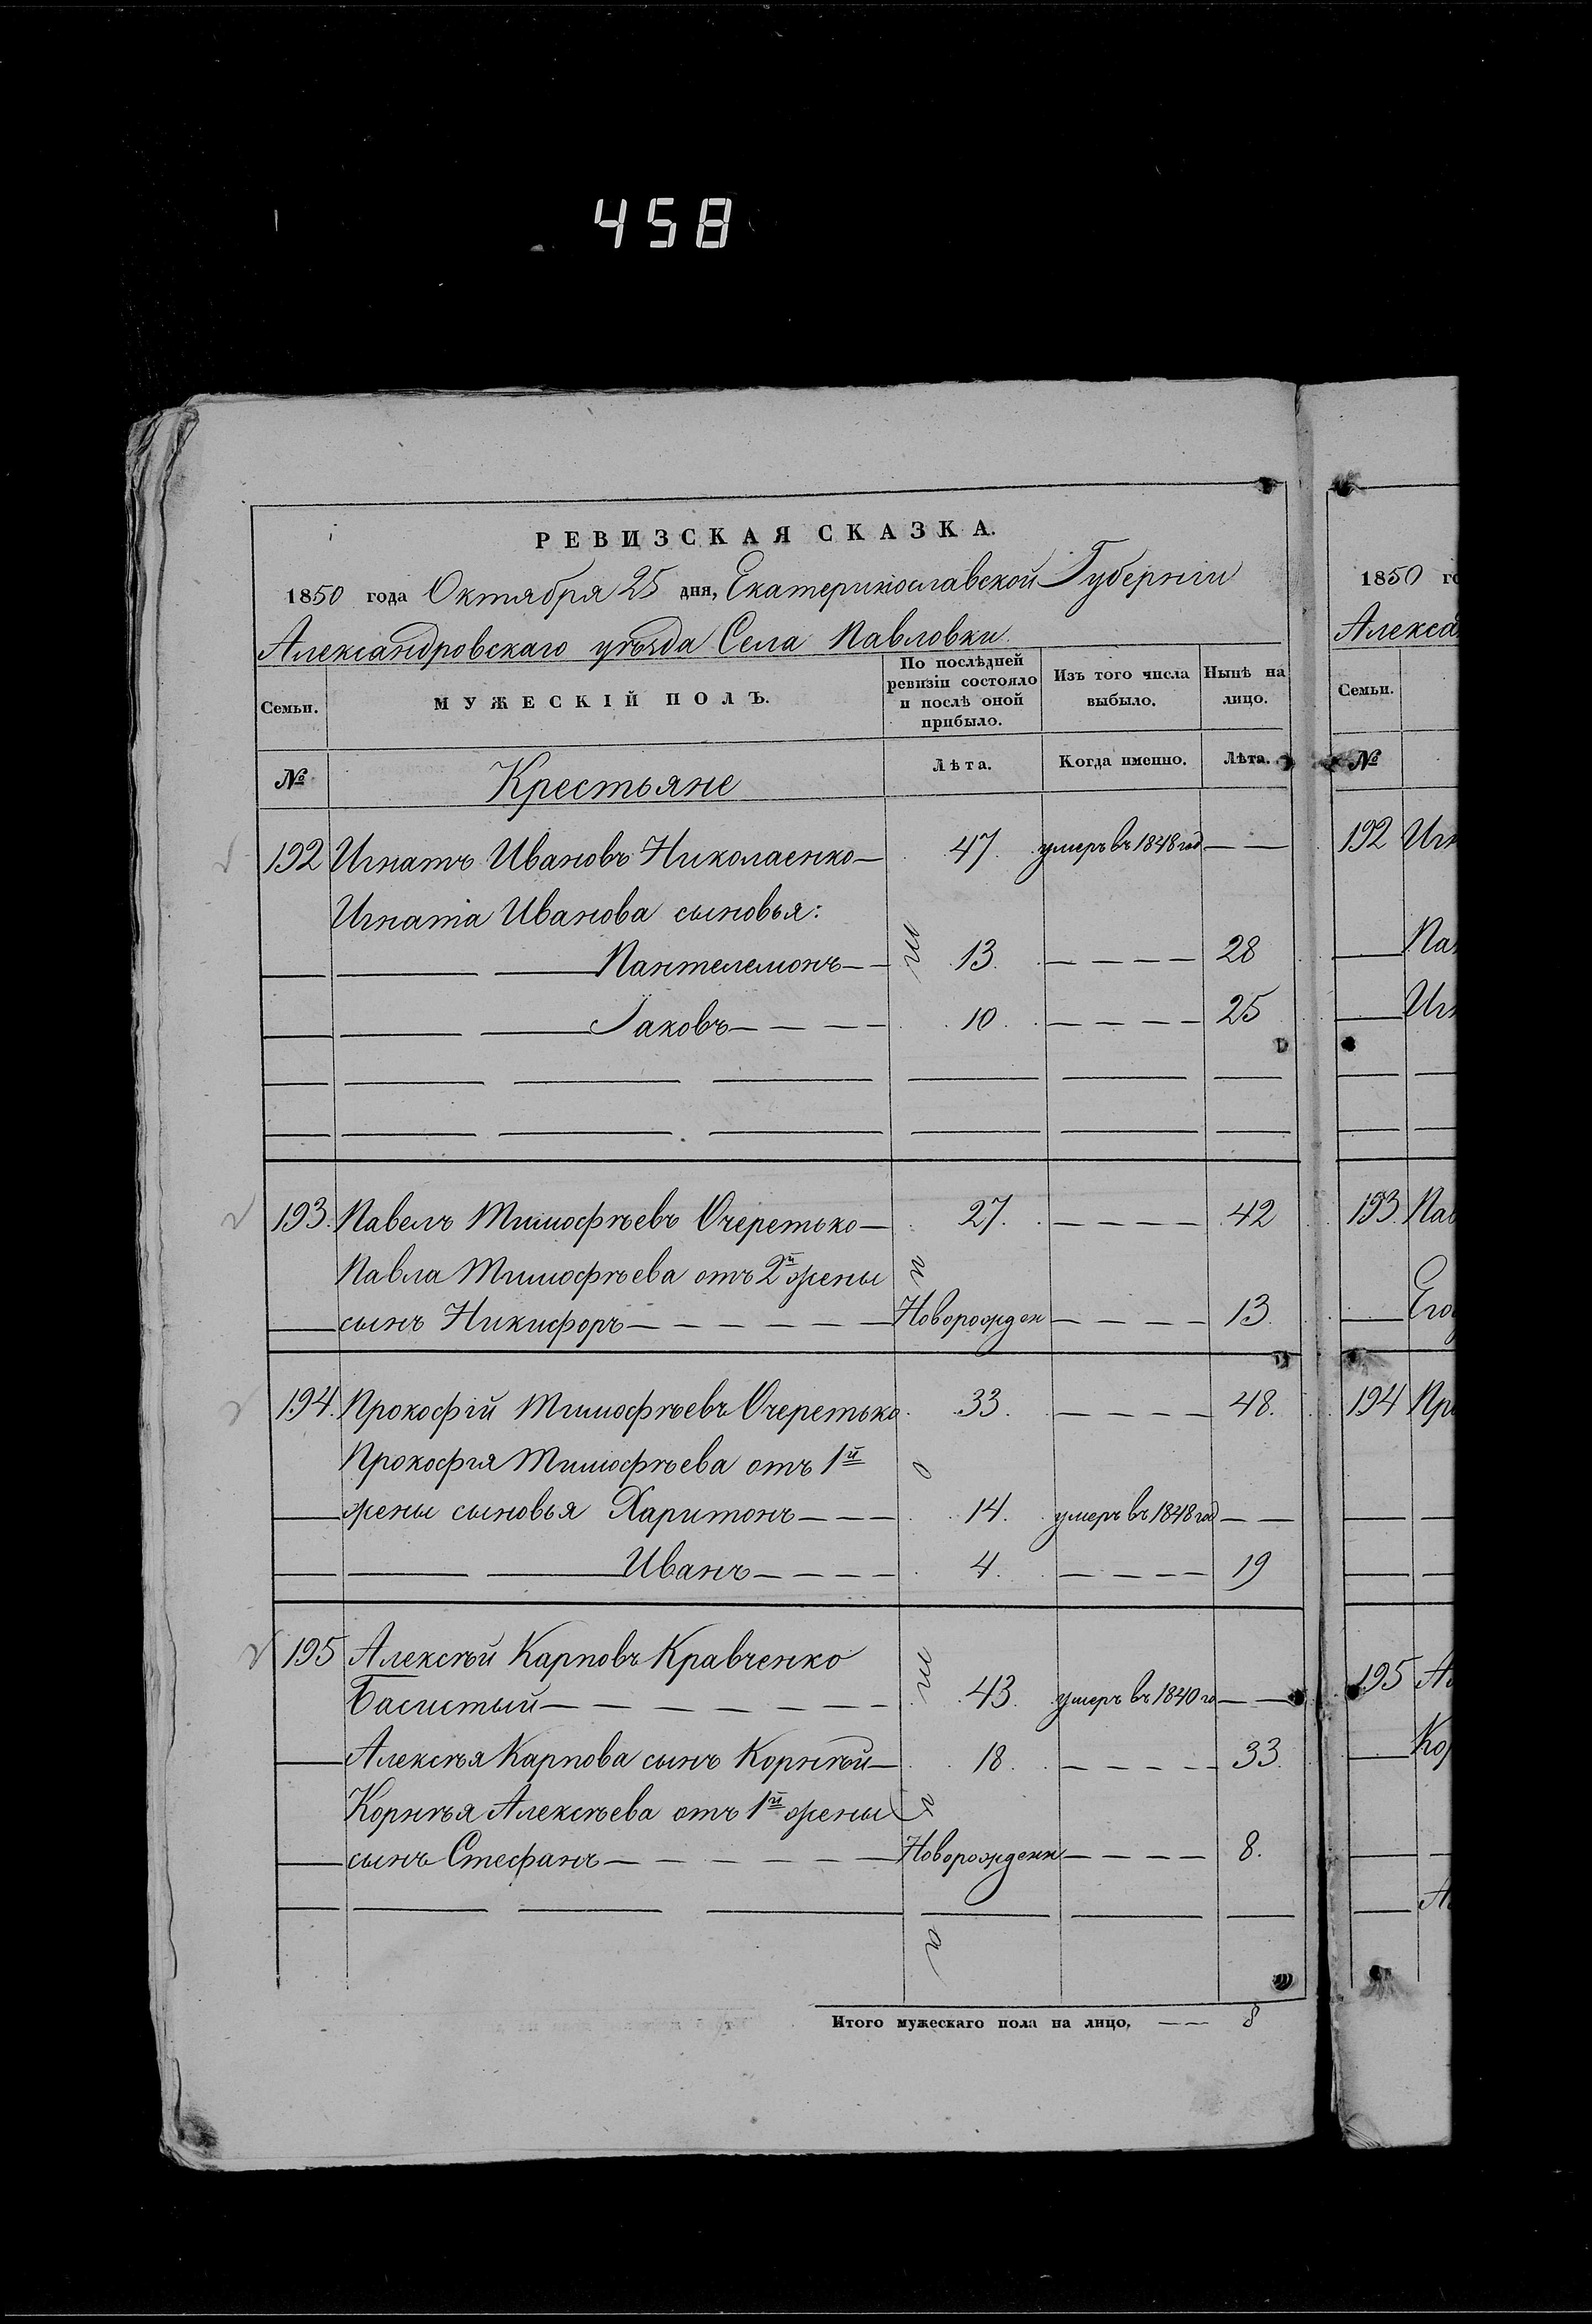 458
РЕВИЗСКАЯ СКАЗКА.
1850 года Октября 25 дня, Екатеринославской Губерніи
Александровскаго уѣзда Села Павловки
Семьи.
МУЖЕСКІЙ ПОЛЪ.
По послѣдней ревизіи состояло и послѣ оной прибыло.
Изъ того числа выбыло.
Нынѣ на лицо.
№
Крестьяне
Лѣта.
Когда именно.
Лѣта.
192 Игнатъ Ивановъ Николаенко 47. умеръ въ 1848 год
Игната Иванова сыновья:
Пантелемонъ 13. 28
Іаковъ 10. 25
193. Павелъ Тимофѣевъ Очеретько 27. 42
Павла Тимофѣева отъ 2й жены
сынъ Никифоръ Новорожден 13.
194. Прокофій Тимофѣевъ Очеретько 33. 48.
Прокофія Тимофѣева отъ 1й
жены сыновья Харитонъ 14. умеръ въ 1848 год
Иванъ 4. 19
195 Алексѣй Карповъ Кравченко
Басистый 43. умеръ въ 1840 го
Алексѣя Карпова сынъ Корнѣй 18. 33.
Корнѣя Алексѣева отъ 1й жены
сынъ Стефанъ Новорожденн 8.
Итого мужескаго пола на лицо. 8
1850 го
Алекса
Семьи.
№
192 Игн
Пан
Иг
193. Пав
Его
194 Пр
195 Ал
Кор
Ал